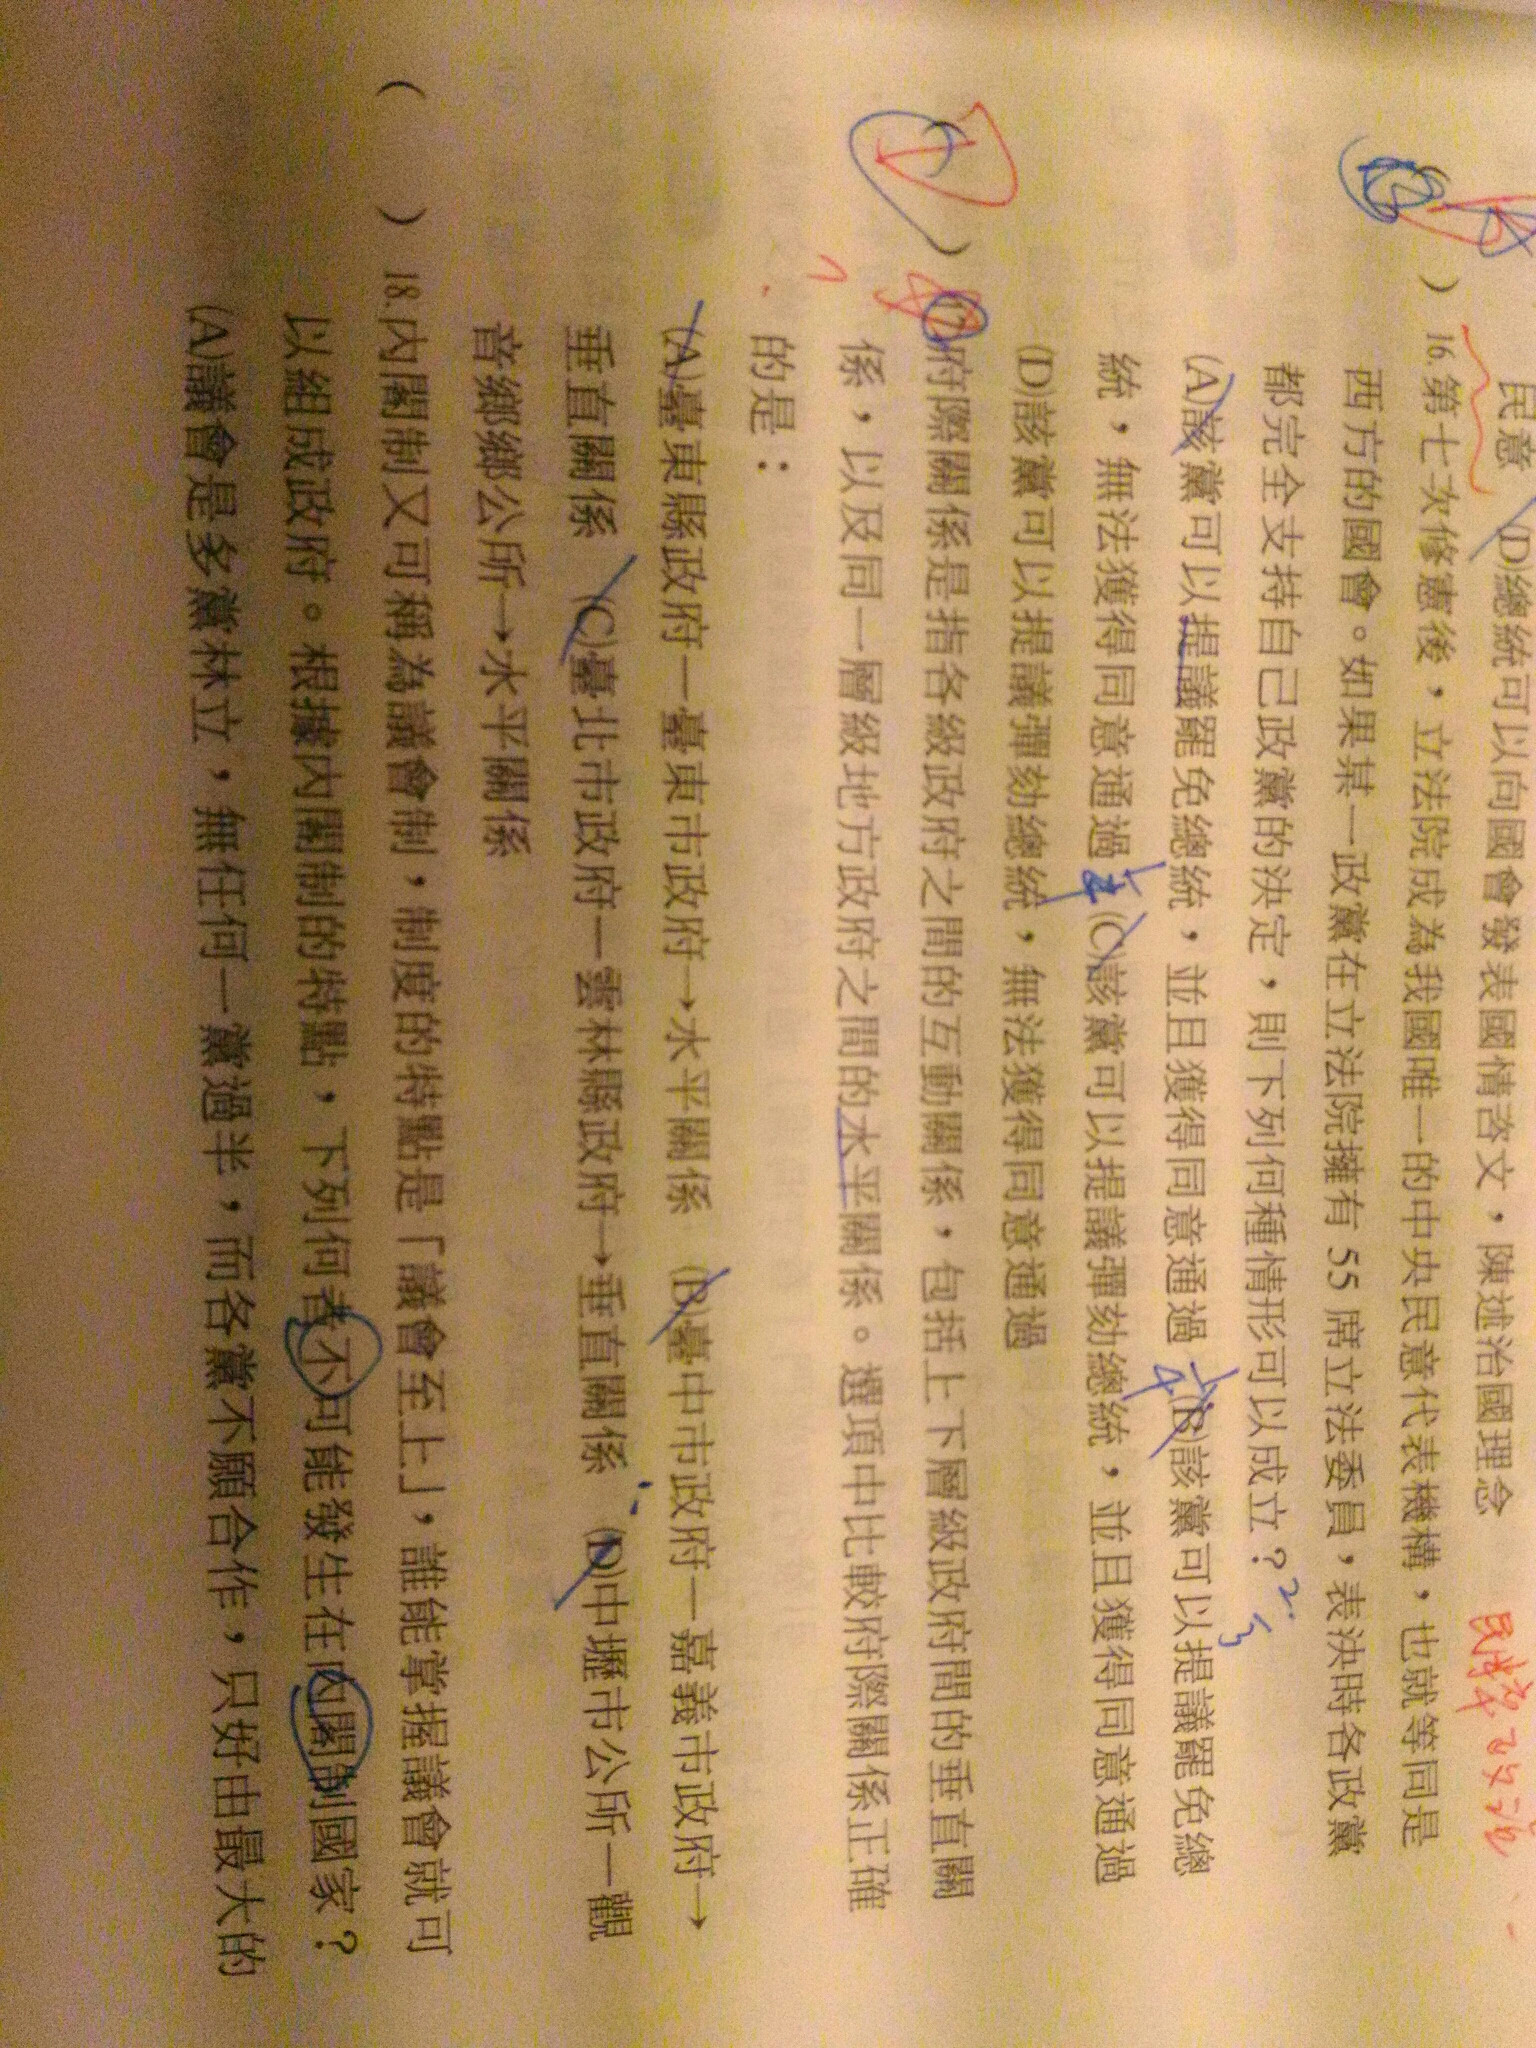 民意　(D)總統可以向國會發表國情咨文，陳述治國理念
民意政治
(　)16.第七次修憲後，立法院成為我國唯一的中央民意代表機構，也就等同是
西方的國會。如果某一政黨在立法院擁有 55 席立法委員，表決時各政黨
都完全支持自己政黨的決定，則下列何種情形可以成立？
(A)該黨可以提議罷免總統，並且獲得同意通過　(B)該黨可以提議罷免總
統，無法獲得同意通過　(C)該黨可以提議彈劾總統，並且獲得同意通過
(D)該黨可以提議彈劾總統，無法獲得同意通過
(　)17.府際關係是指各級政府之間的互動關係，包括上下層級政府間的垂直關
係，以及同一層級地方政府之間的水平關係。選項中比較府際關係正確
的是：
(A)臺東縣政府—臺東市政府→水平關係　(B)臺中市政府—嘉義市政府→
垂直關係　(C)臺北市政府—雲林縣政府→垂直關係　(D)中壢市公所—觀
音鄉鄉公所→水平關係
(　)18.內閣制又可稱為議會制，制度的特點是「議會至上」，誰能掌握議會就可
以組成政府。根據內閣制的特點，下列何者不可能發生在內閣制國家？
(A)議會是多黨林立，無任何一黨過半，而各黨不願合作，只好由最大的